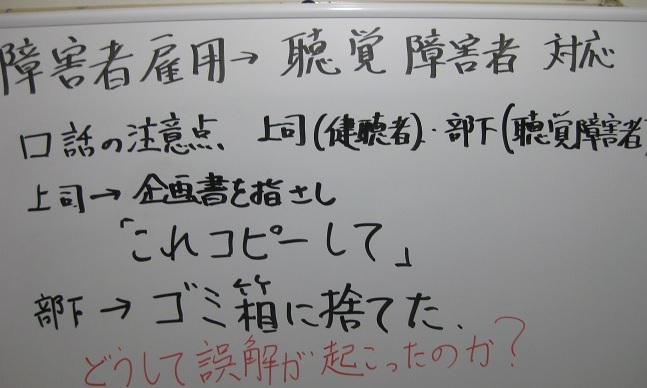 障害者雇用→聴覚障害者 対応
口話の注意点 上司(健聴者)・部下(聴覚障害者)
上司→企画書を指さし
「これコピーして」
部下→ゴミ箱に捨てた、
どうして誤解が起こったのか?